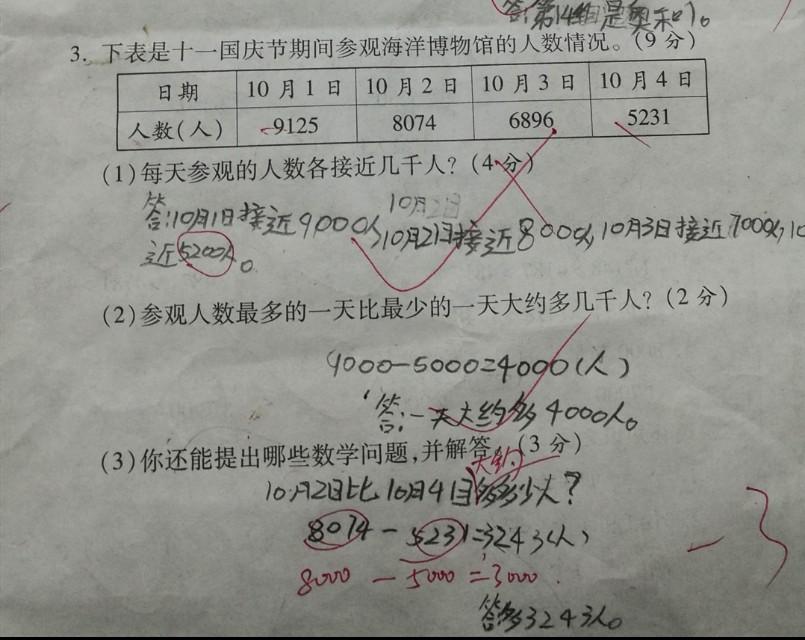 答:第14组是奥利叭。
3. 下表是十一国庆节期间参观海洋博物馆的人数情况。(9分)
日期 10月1日 10月2日 10月3日 10月4日
人数(人) 9125 8074 6896 5231
(1)每天参观的人数各接近几千人?(4分)
10月2日
答:10月1日接近9000人,10月2日接近8000人,10月3日接近7000人,10
近5200人。
(2)参观人数最多的一天比最少的一天大约多几千人?(2分)
9000-5000=4000(人)
答:一天大约多4000人。
(3)你还能提出哪些数学问题,并解答。(3分)
大约
10月2日比10月4日多多少人?
8074-5231=3243(人)
8000-5000=3000.
-3
答:多3243人。